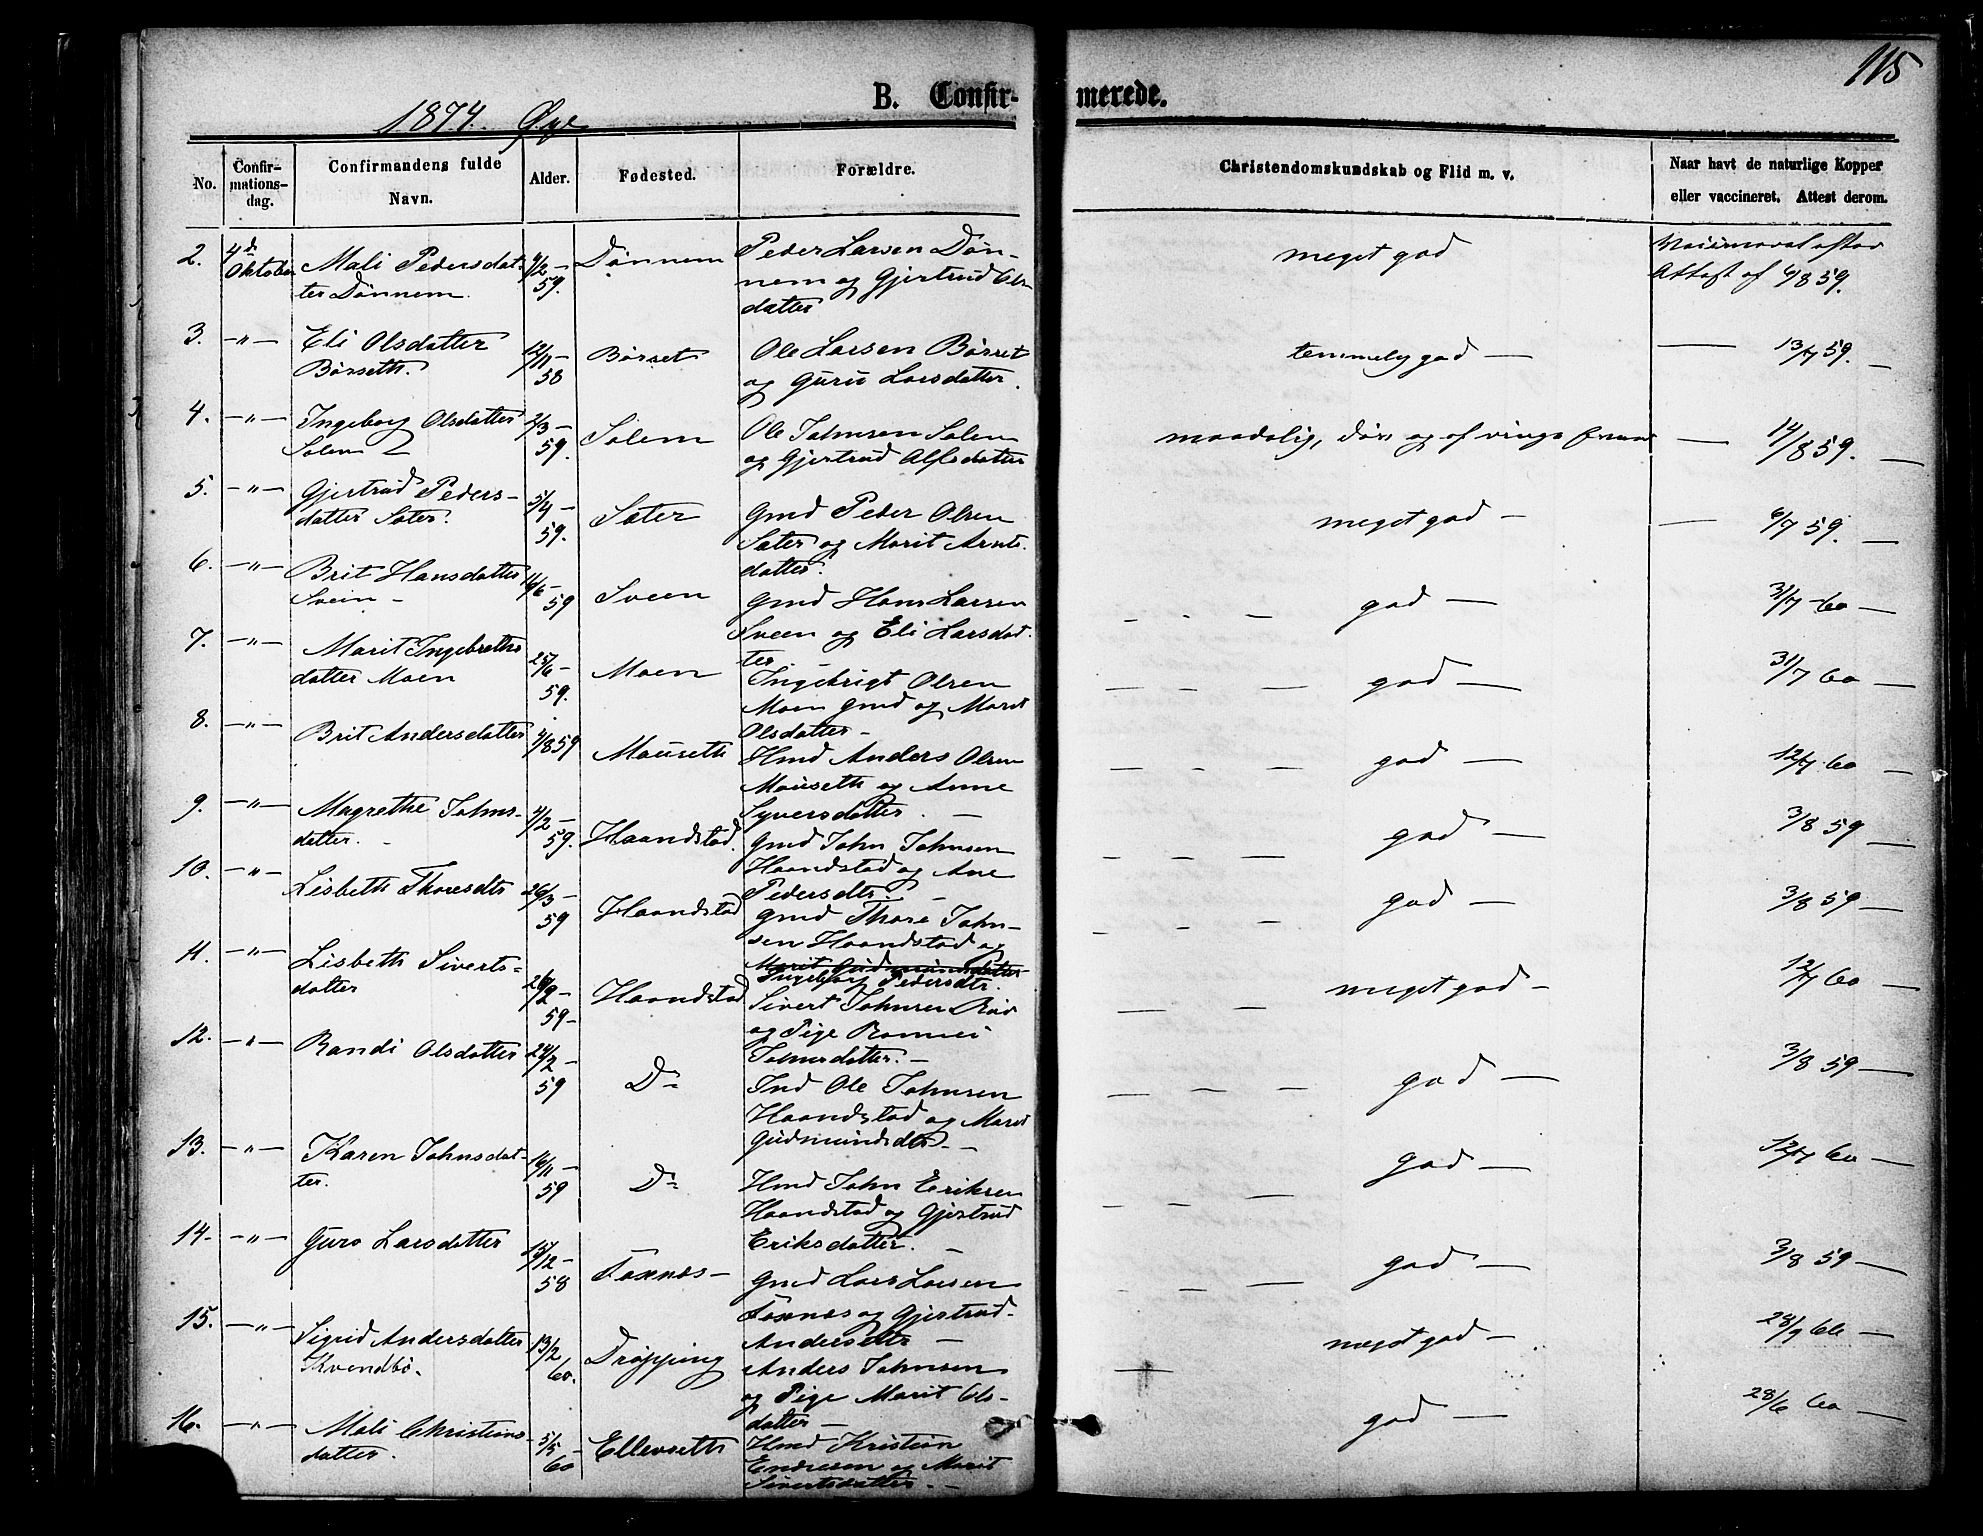 115
B. Confir-
merede.
1874. Øye
No.
Confir-
mations-
dag.
Confirmandens fulde
Navn.
Alder.
Fødested.
Forældre.
Christendomskundskab og Flid m. v.
Naar havt de naturlige Kopper
eller vaccineret. Attest derom.
2. 4d Oktober Mali Pedersdat-
ter Dønnem.
4/2 –
59.
Dønnem
Peder Larsen Døn-
nem og Gjertrud Ols
datter
meget god
Attest af 6/8 59.
3. –"– Eli Olsdatter
Børseth.
12/11 –
58
Børset
Ole Larsen Børset
og Guru Larsdatter.
temmelig god –
— 13/7 59. –
4. –"– Ingeborg Olsdatter
Solem
2/3 –
59.
Solem
Ole Johnsen Solem
og Gjertrud Olfsdatter
maadelig, døv og af ringe
— 14/8 59. –
5. –"– Gjertrud Peders-
datter Sæter.
5/4 –
59.
Sæter
Gmd Peder Olsen
Sæter og Marit Arnts-
datter.
meget god –
— 6/7 59. –
6. –"– Brit Hansdatter
Svein –
16/6 –
59
Sveen
Gmd Hans Larsen
Sveen og Eli Larsdat-
ter
god –
3/7 60 –
7. –"– Marit Ingebreths
datter Moen
25/6 –
59.
Moen
Ingebrigt Olsen
Moen Gmd og Marit
Olsdatter –
god –
31/7 60 –
8. –"– Brit Andersdatter
4/8 59
Mauseth
Hmd Anders Olsen
Mauseth og Anne
Syversdatter. –
god –
12/7 60 –
9. –"– Magrethe Johns-
datter. –
4/2 –
59.
Haandstad.
Gmd John Johnsen
Haandstad og Ane
Pedersdtr. –
god –
3/8 59 –
10. –"– Lisbeth Thoresdtr
26/3 –
59
Haandstad
Gmd Thore John-
sen Haandstad og
Marit Gudmundsdatter
Ingeborg Pedersdtr.
god –
3/8 59 –
11. –"– Lisbeth Siverts-
datter
59 –
Haandstad
Sivert Johnsen
og Pige
Johnsdatter. –
meget god –
12/7 60 –
12. –"– Randi Olsdatter
24/2 –
59
Do
Ind Ole Johnsen
Haandstad og Marit
Gudmundsdtr. –
god –
3/8 59 –
13. –"– Karen Johnsdat-
ter.
16/11 –
59
Do
Hmd John Eriksen
Haandstad og Gjertrud
Eriksdatter. –
god –
12/7 60 –
14. –"– Guro Larsdatter
15/12 –
58
Foxnes –
Gmd Lars Larsen
Foxnæs og Gjertrud
Andersdtr –
god –
3/8 59 –
15. –"– Sigrid Andersdatter
Kvendbø.
13/2
60.
Drøpping
Anders Johnsen
og Pige Marit Ols-
datter –
meget god –
28/9 66 –
16. –"– Mali Christians
datter.
5/5 –
60
Ellevseth
Hmd Kristian
Endresen og Marit
Sivertsdatter. –
god –
28/6 60 –